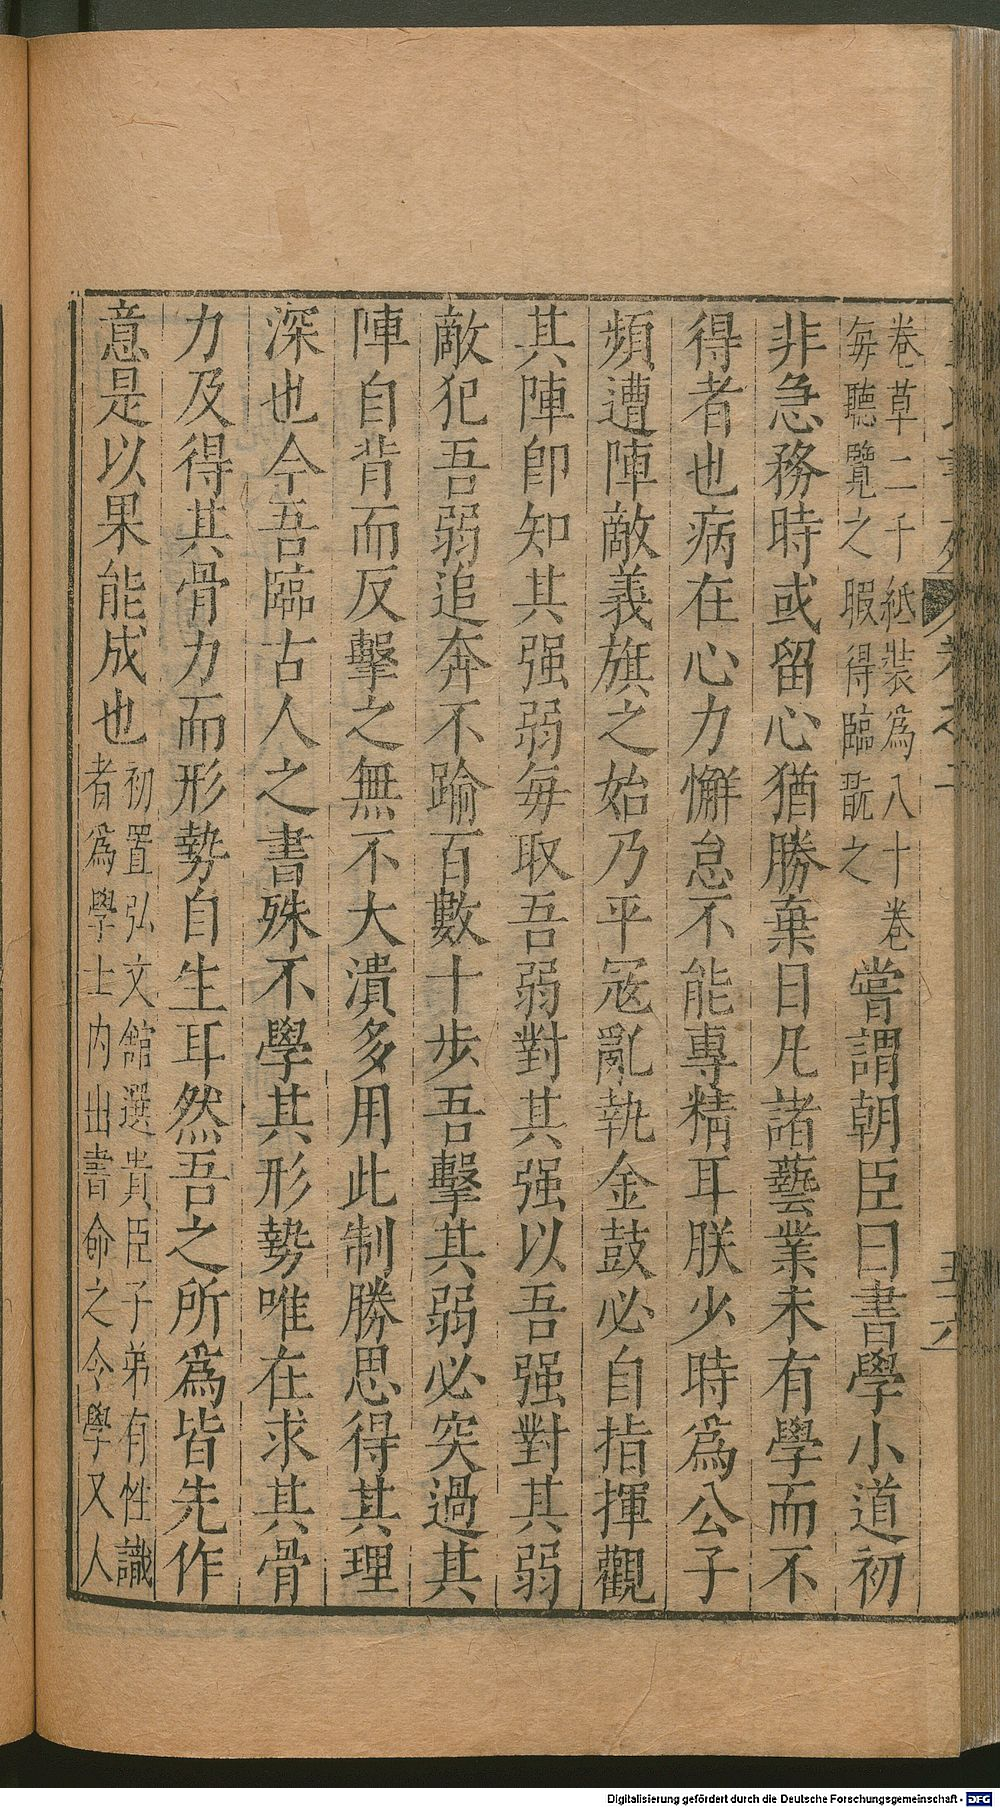 卷草二千紙裝爲八十卷
每聽覽之暇得臨翫之
嘗謂朝臣曰書學小道初
非急務時或留心猶勝棄日凡諸藝業未有學而不
得者也病在心力懈怠不能專精耳朕少時爲公子
頻遭陣敵義旗之始乃平冦亂執金鼓必自指揮觀
其陣卽知其强弱每取吾弱對其强以吾强對其弱
敵犯吾弱追奔不踰百數十步吾擊其弱必突過其
陣自背而反擊之無不大潰多用此制勝思得其理
深也今吾臨古人之書殊不學其形勢唯在求其骨
力及得其骨力而形勢自生耳然吾之所爲皆先作
意是以果能成也
初置弘文舘選貴臣子弟有性識
者爲學士内出書命之令學又人
Digitalisierung gefördert durch die Deutsche Forschungsgemeinschaft - DFG